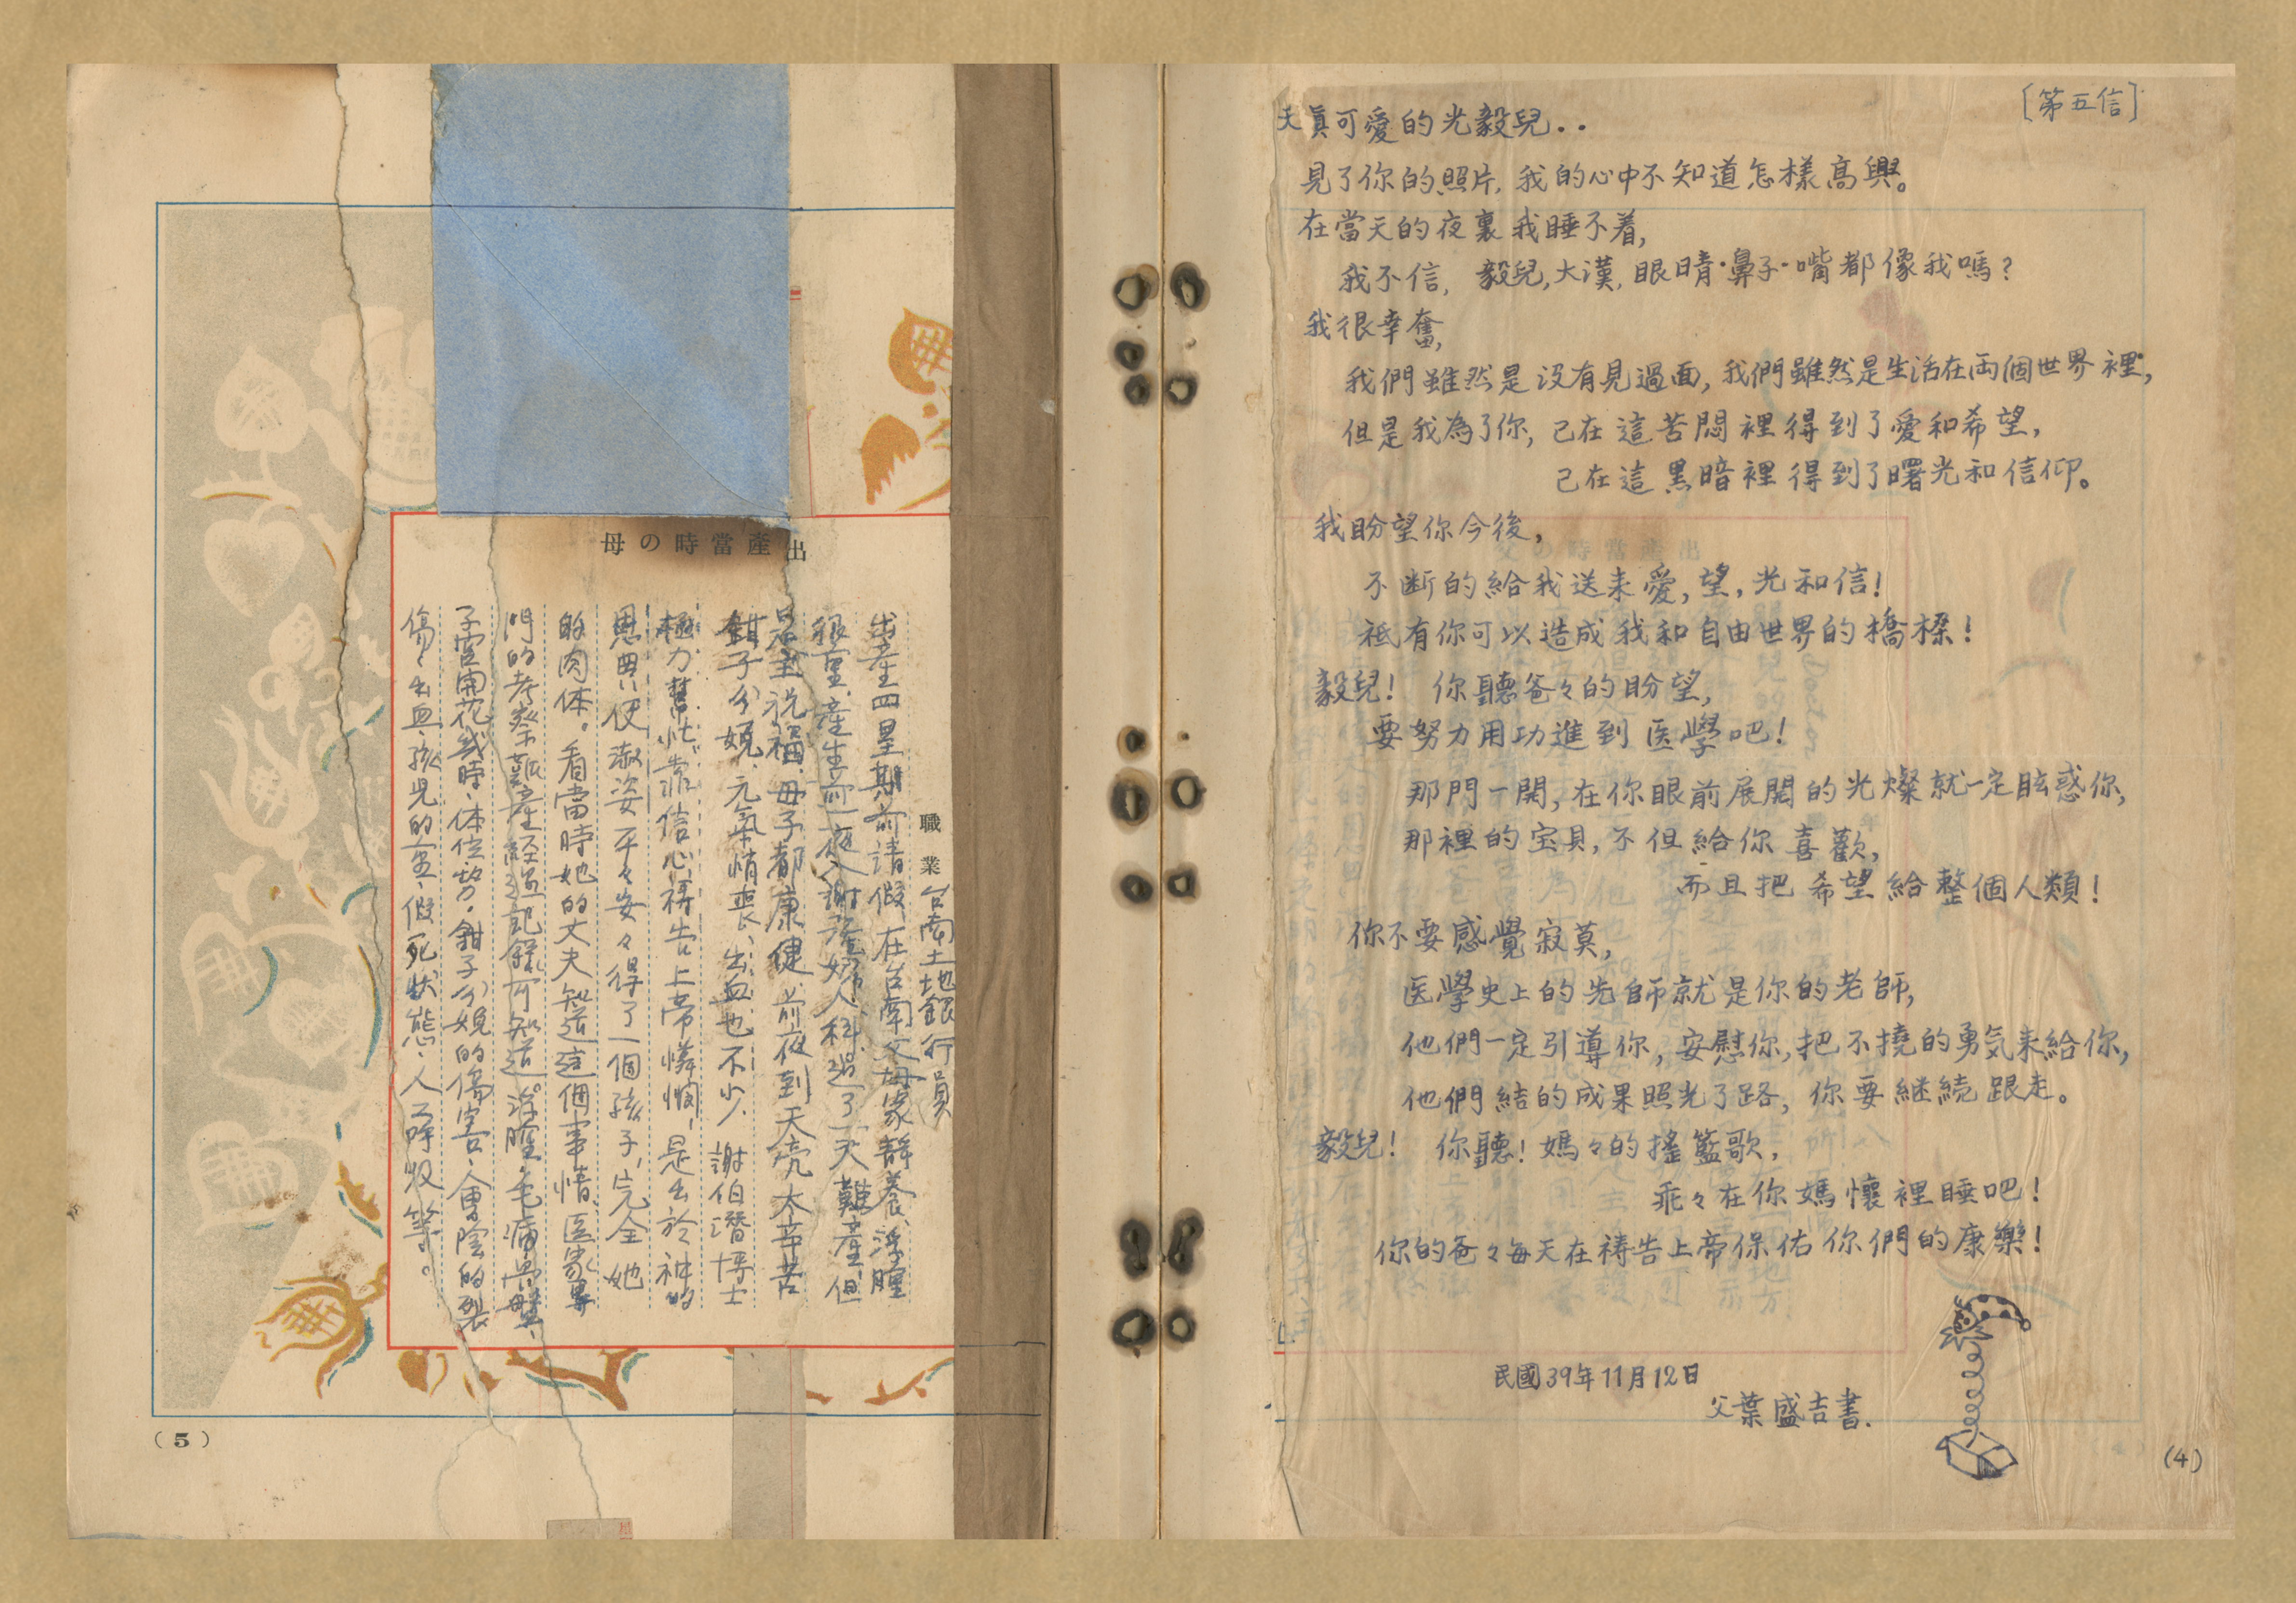 [第五信]
天真可愛的光毅兒..
見了你的照片, 我的心中不知道怎樣高興。
在當天的夜裏我睡不着,
我不信, 毅兒, 大漢, 眼睛·鼻子·嘴都像我嗎?
我很幸奮,
我們雖然是没有見過面, 我們雖然是生活在両個世界裡,
但是我為了你, 已在這苦悶裡得到了愛和希望,
已在這黑暗裡得到了曙光和信仰。
我盼望你今後,
不断的給我送来愛, 望, 光和信!
祗有你可以造成我和自由世界的橋樑!
毅兒! 你聽爸々的盼望,
要努力用功進到医學吧!
那門一開, 在你眼前展開的光燦就一定眩惑你,
那裡的宝貝, 不但給你喜歡,
而且把希望給整個人類!
你不要感覺寂莫,
医學史上的先師就是你的老師,
他們一定引導你, 安慰你, 把不撓的勇気来給你,
他們結的成果照光了路, 你要継続跟走。
毅兒! 你聽! 媽々的搖籃歌,
乖々在你媽懷裡睡吧!
你的爸々每天在祷告上帝保佑你們的康樂!
民國39年11月12日
父葉盛吉書.
(4)
出產當時の母
職業 台南土地銀行員
出產四星期前請假在台南父母家靜養、浮腫
很重、產生前一夜入謝產婦人科過了一天難產、但
是主祝福、母子都康健、前夜到天亮太辛苦
鉗子分娩、元氣悄喪、出血也不少、謝伯潛博士
極力幫忙、靠信心祷告上帝憐憫、是出於神的
恩典、使淑姿平々安々得了一個孩子、完全她
的肉体。看當時她的丈夫知道這個事情、医家專
門的考察難產經過記錄可知道。浮腫、毛病、骨盤、
子宮開花或時、体位勢、鉗子分娩的傷害、會陰的裂
傷、出血、孩兒的重、假死狀態、人工呼吸等。
(5)